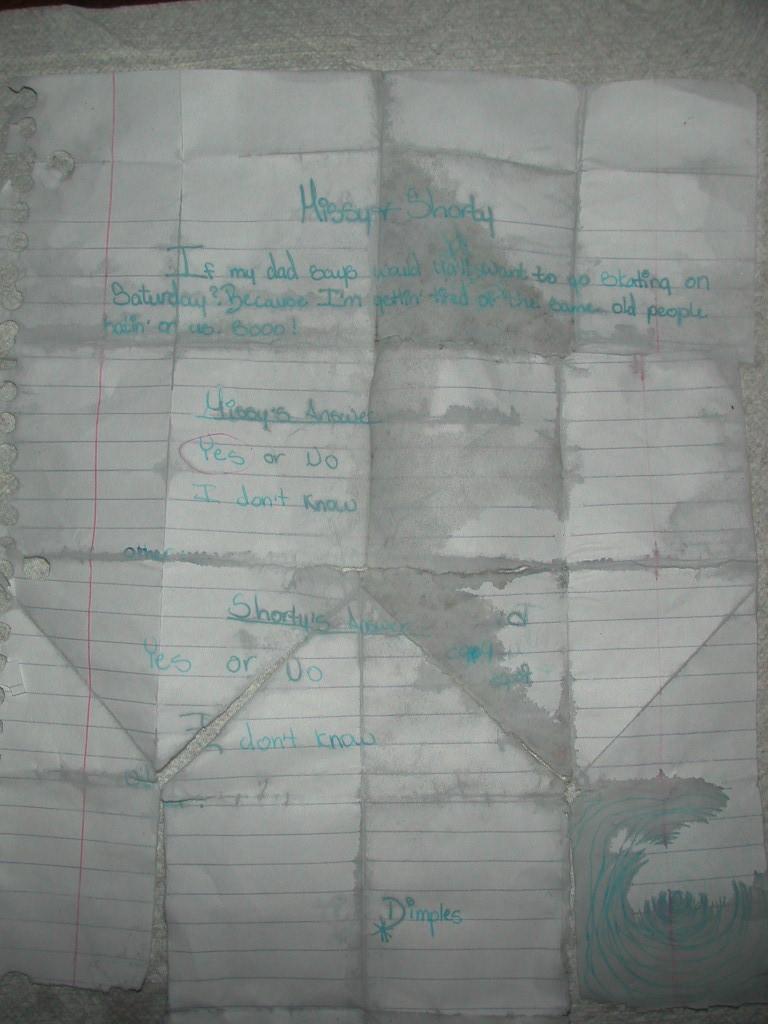 Missy & Shorty
If my dad says would ya'll want to go skating on
Saturday? Because I'm gettin' tired of the same old people
hatin' on us. Booo!
Missy's Answer
Yes or No
I don't know
Shorty's Answer
Yes or No
I don't know
*Dimples